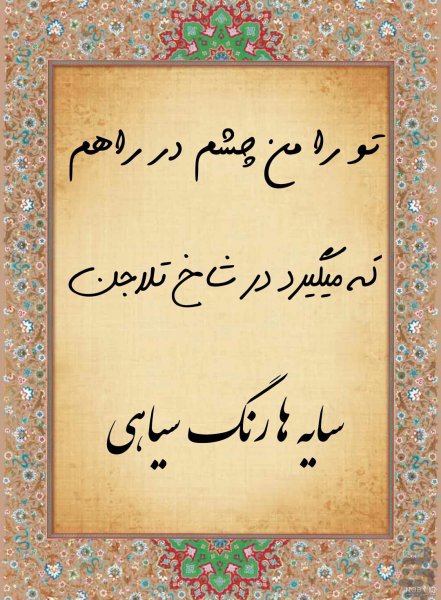 تو را من چشم در راهم
که میگیرد در شاخ تلاجن
سایه ها رنگ سیاهی